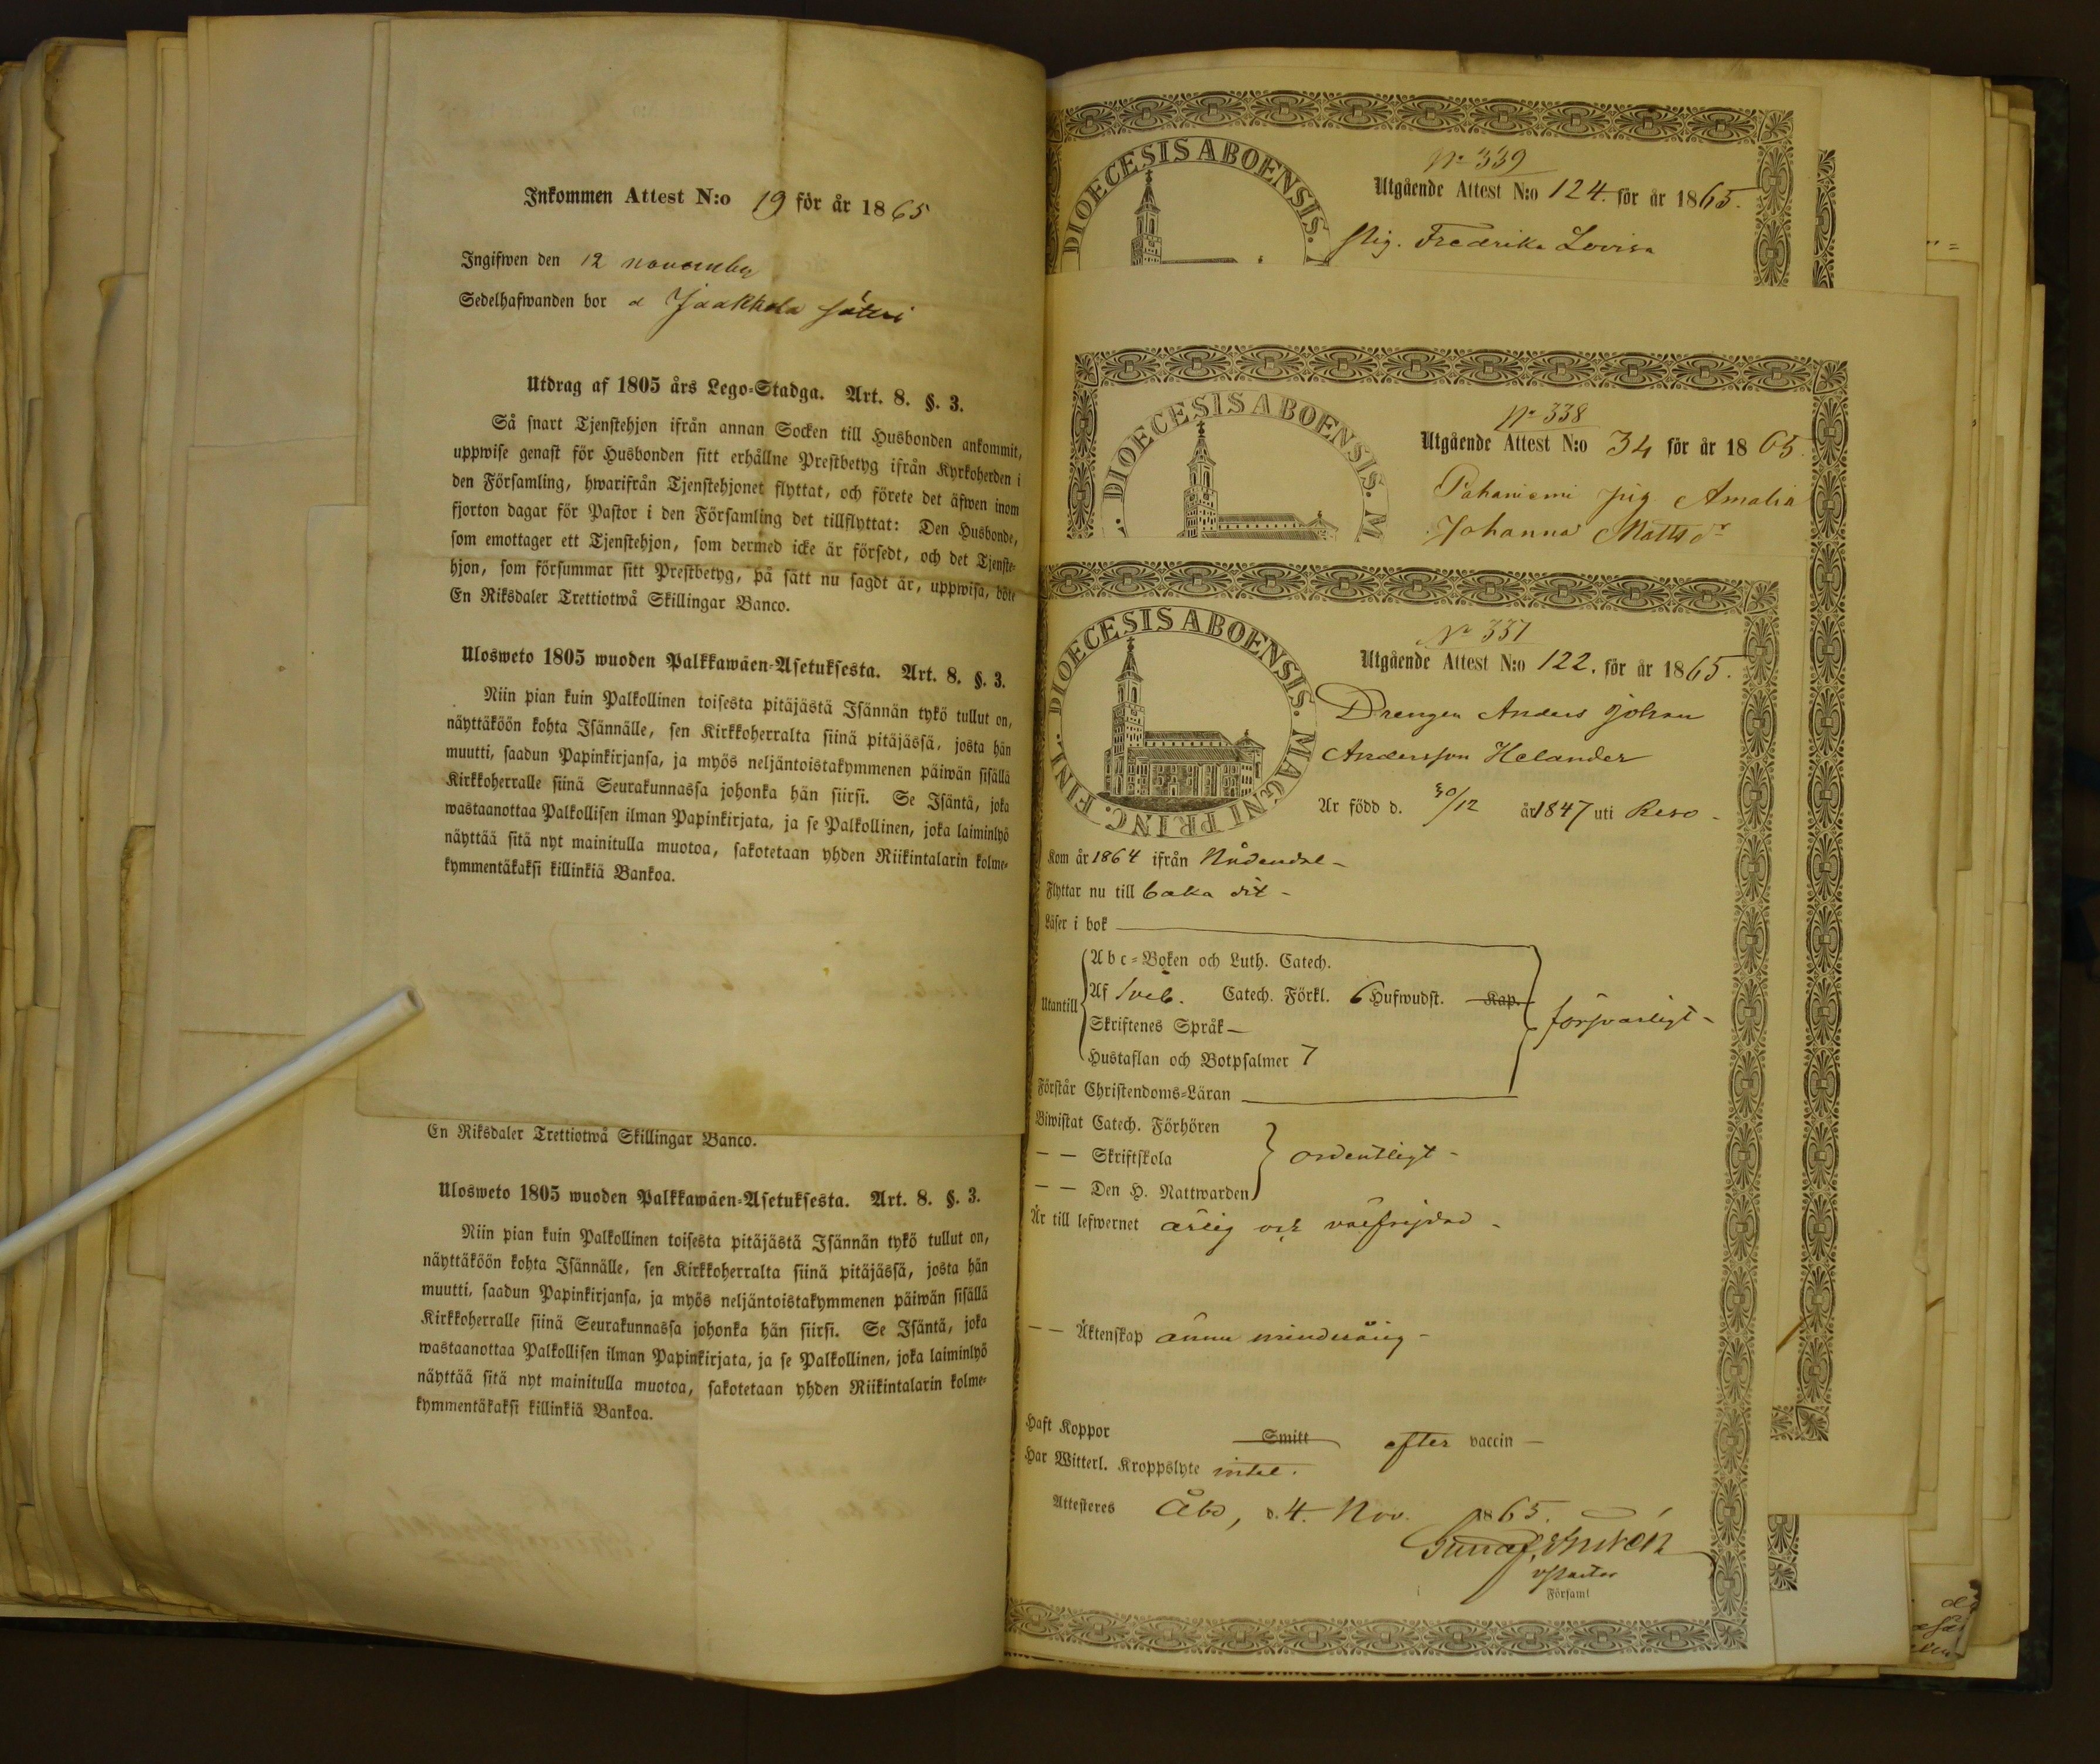 Inkommen Attest N:o 19 för år 1865
Ingifwen den 12 november
Sedelhafwanden bor å Jaakkola säteri
Utdrag af 1805 års Lego-Stadga. Art. 8. §. 3.
Så snart Tjenstehjon ifrån annan Socken till Husbonden ankommit,
uppwise genast för Husbonden sitt erhållne Prestbetyg ifrån Kyrkoherden i
den Församling, hwarifrån Tjenstehjonet flyttat, och förete det äfwen inom
fjorton dagar för Pastor i den Församling det tillflyttat: Den Husbonde,
som emottager ett Tjenstehjon, som dermed icke är försedt, och det Tjenste-
hjon, som försummar sitt Prestbetyg, på sätt nu sagdt är, uppwisa, böte
En Riksdaler Trettiotwå Skillingar Banco.
Ulosweto 1805 wuoden Palkkawäen-Asetuksesta. Art. 8. §. 3.
Niin pian kuin Palkollinen toisesta pitäjästä Isännän tykö tullut on,
näyttäköön kohta Isännälle, sen Kirkkoherralta siinä pitäjässä, josta hän
muutti, saadun Papinkirjansa, ja myös neljäntoistakymmenen päiwän sisällä
Kirkkoherralle siinä Seurakunnassa johonka hän siirsi. Se Isäntä, joka
wastaanottaa Palkollisen ilman Papinkirjata, ja se Palkollinen, joka laiminlyö
näyttää sitä nyt mainitulla muotoa, sakotetaan yhden Riikintalarin kolme-
kymmentäkaksi killinkiä Bankoa.
En Riksdaler Trettiotwå Skillingar Banco.
Ulosweto 1805 wuoden Palkkawäen-Asetuksesta. Art. 8. §. 3.
Niin pian kuin Palkollinen toisesta pitäjästä Isännän tykö tullut on,
näyttäköön kohta Isännälle, sen Kirkkoherralta siinä pitäjässä, josta hän
muutti, saadun Papinkirjansa, ja myös neljäntoistakymmenen päiwän sisällä
Kirkkoherralle siinä Seurakunnassa johonka hän siirsi. Se Isäntä, joka
wastaanottaa Palkollisen ilman Papinkirjata, ja se Palkollinen, joka laiminlyö
näyttää sitä nyt mainitulla muotoa, sakotetaan yhden Riikintalarin kolme-
kymmentäkaksi killinkiä Bankoa.
DIOECESIS ABOENSIS.
No 339
Utgående Attest N:o 124. för år 1865.
Pig. Fredrika Lovisa
DIOECESIS ABOENSIS. M
No 338
Utgående Attest N:o 34 för år 1865.
Pahaniemi pig Amalia
Johanna Mattsdr
DIOECESIS ABOENSIS. MAGNI PRINC. FINL.
No 337
Utgående Attest N:o 122. för år 1865.
Drengen Anders Johan
Andersson Helander
Är född d. 30/12 år 1847 uti Reso -
Kom år 1864 ifrån Nådendal -
Flyttar nu till baka dit -
Läser i bok
Utantill
Abc-Boken och Luth. Catech.
Af Sveb. Catech. Förkl. 6 Hufwudst. Kap.
Skriftenes Språk -
Hustaflan och Botpsalmer 7
försvarligt -
Förstår Christendoms-Läran
Biwistat Catech. Förhören
— — Skriftskola
— — Den H. Nattwarden
ordentligt -
Är till lefwernet ärlig och välfrejdad -
— — Äktenskap ännu minderårig -
Haft Koppor Smitt efter vaccin —
Har Witterl. Kroppslyte intet.
Attesteras Åbo, d. 4. Nov. 1865.
v. Pastor
Församl